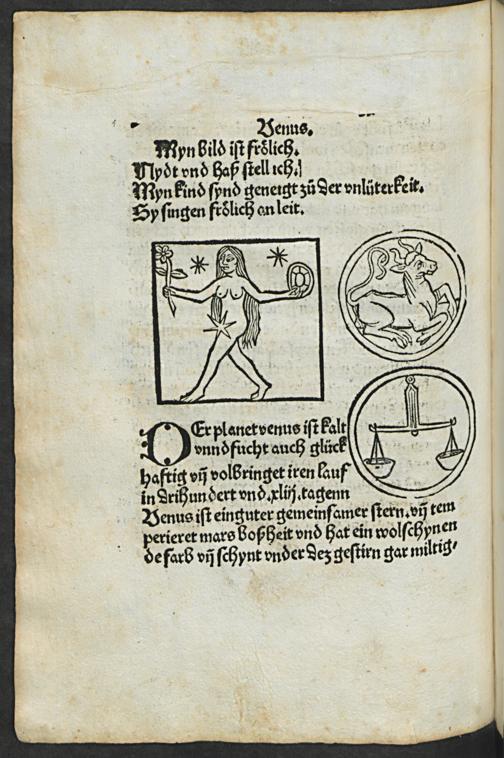 Venus.
Myn bild ist frölich.
Nydt vnd haß stell ich.
Myn kind synd geneigt zů der vnlüterkeit.
Sy singen frölich on leit.
DEr planet venus ist kalt
vnnd fücht auch glück
haftig vñ volbringet iren lauf
in drihundert vnd .xliij. tagenn
Venus ist ein guter gemeinsamer stern. vñ tem
perieret mars boßheit vnd hat ein wolschynen
de farb vñ schynt vnder dez gestirn gar miltig-